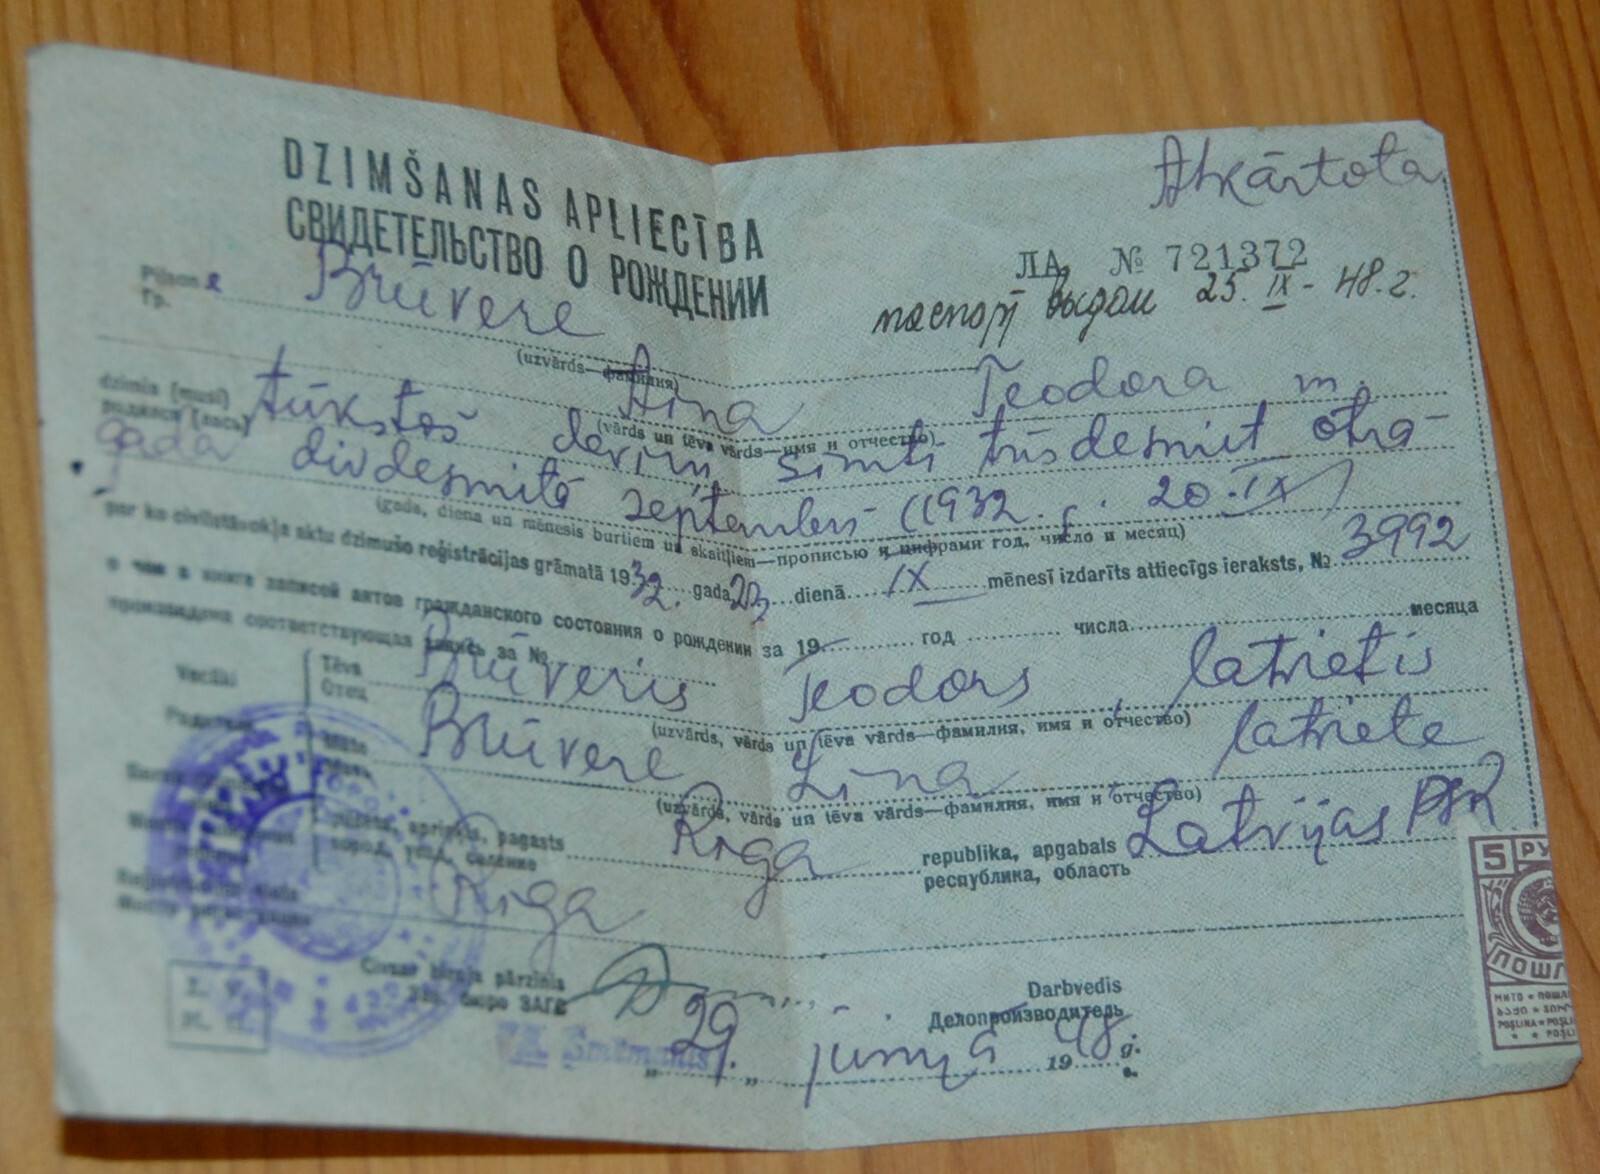 Atkārtota
DZIMŠANAS APLIECĪBA
СВИДЕТЕЛЬСТВО О РОЖДЕНИИ
ЛА № 721372
паспорт выдан 25. IX - 48. г.
Pilson e Brūvere
Гр.
(uzvārds—фамилия)
Aina Teodora m.
(vārds un tēva vārds—имя и отчество)
dzimis (musi) tūkstoš deviņi simti trīsdesmit otra-
родился (лась)
gada divdesmitā septembrī (1932. g. 20. IX)
(gads, diena un mēnesis burtiem un skaitļiem—прописью и цифрами год, число и месяц)
par ko civilstāvokļa aktu dzimušo reģistrācijas grāmatā 1932. gada 23. dienā IX mēnesī izdarīts attiecīgs ieraksts, № 3992
о чем в книге записей актов гражданского состояния о рождении за 19 год числа месяца
произведена соответствующая запись за №
Vecāki Tēvs Brūveris Teodors, latvietis
Отец
(uzvārds, vārds un tēva vārds—фамилия, имя и отчество)
Родители Māte Brūvere Līna latviete
Мать
(uzvārds, vārds un tēva vārds—фамилия, имя и отчество)
pilsēta, apriņķis, pagasts Rīga republika, apgabals Latvijas PSR
город, уезд, селение республика, область
Rīga
Civilst. biroja pārzinis Darbvedis
Зав. бюро ЗАГС Делопроизводитель
„29.” jūnijā 1948. g.
5 РУ
ПОШЛ